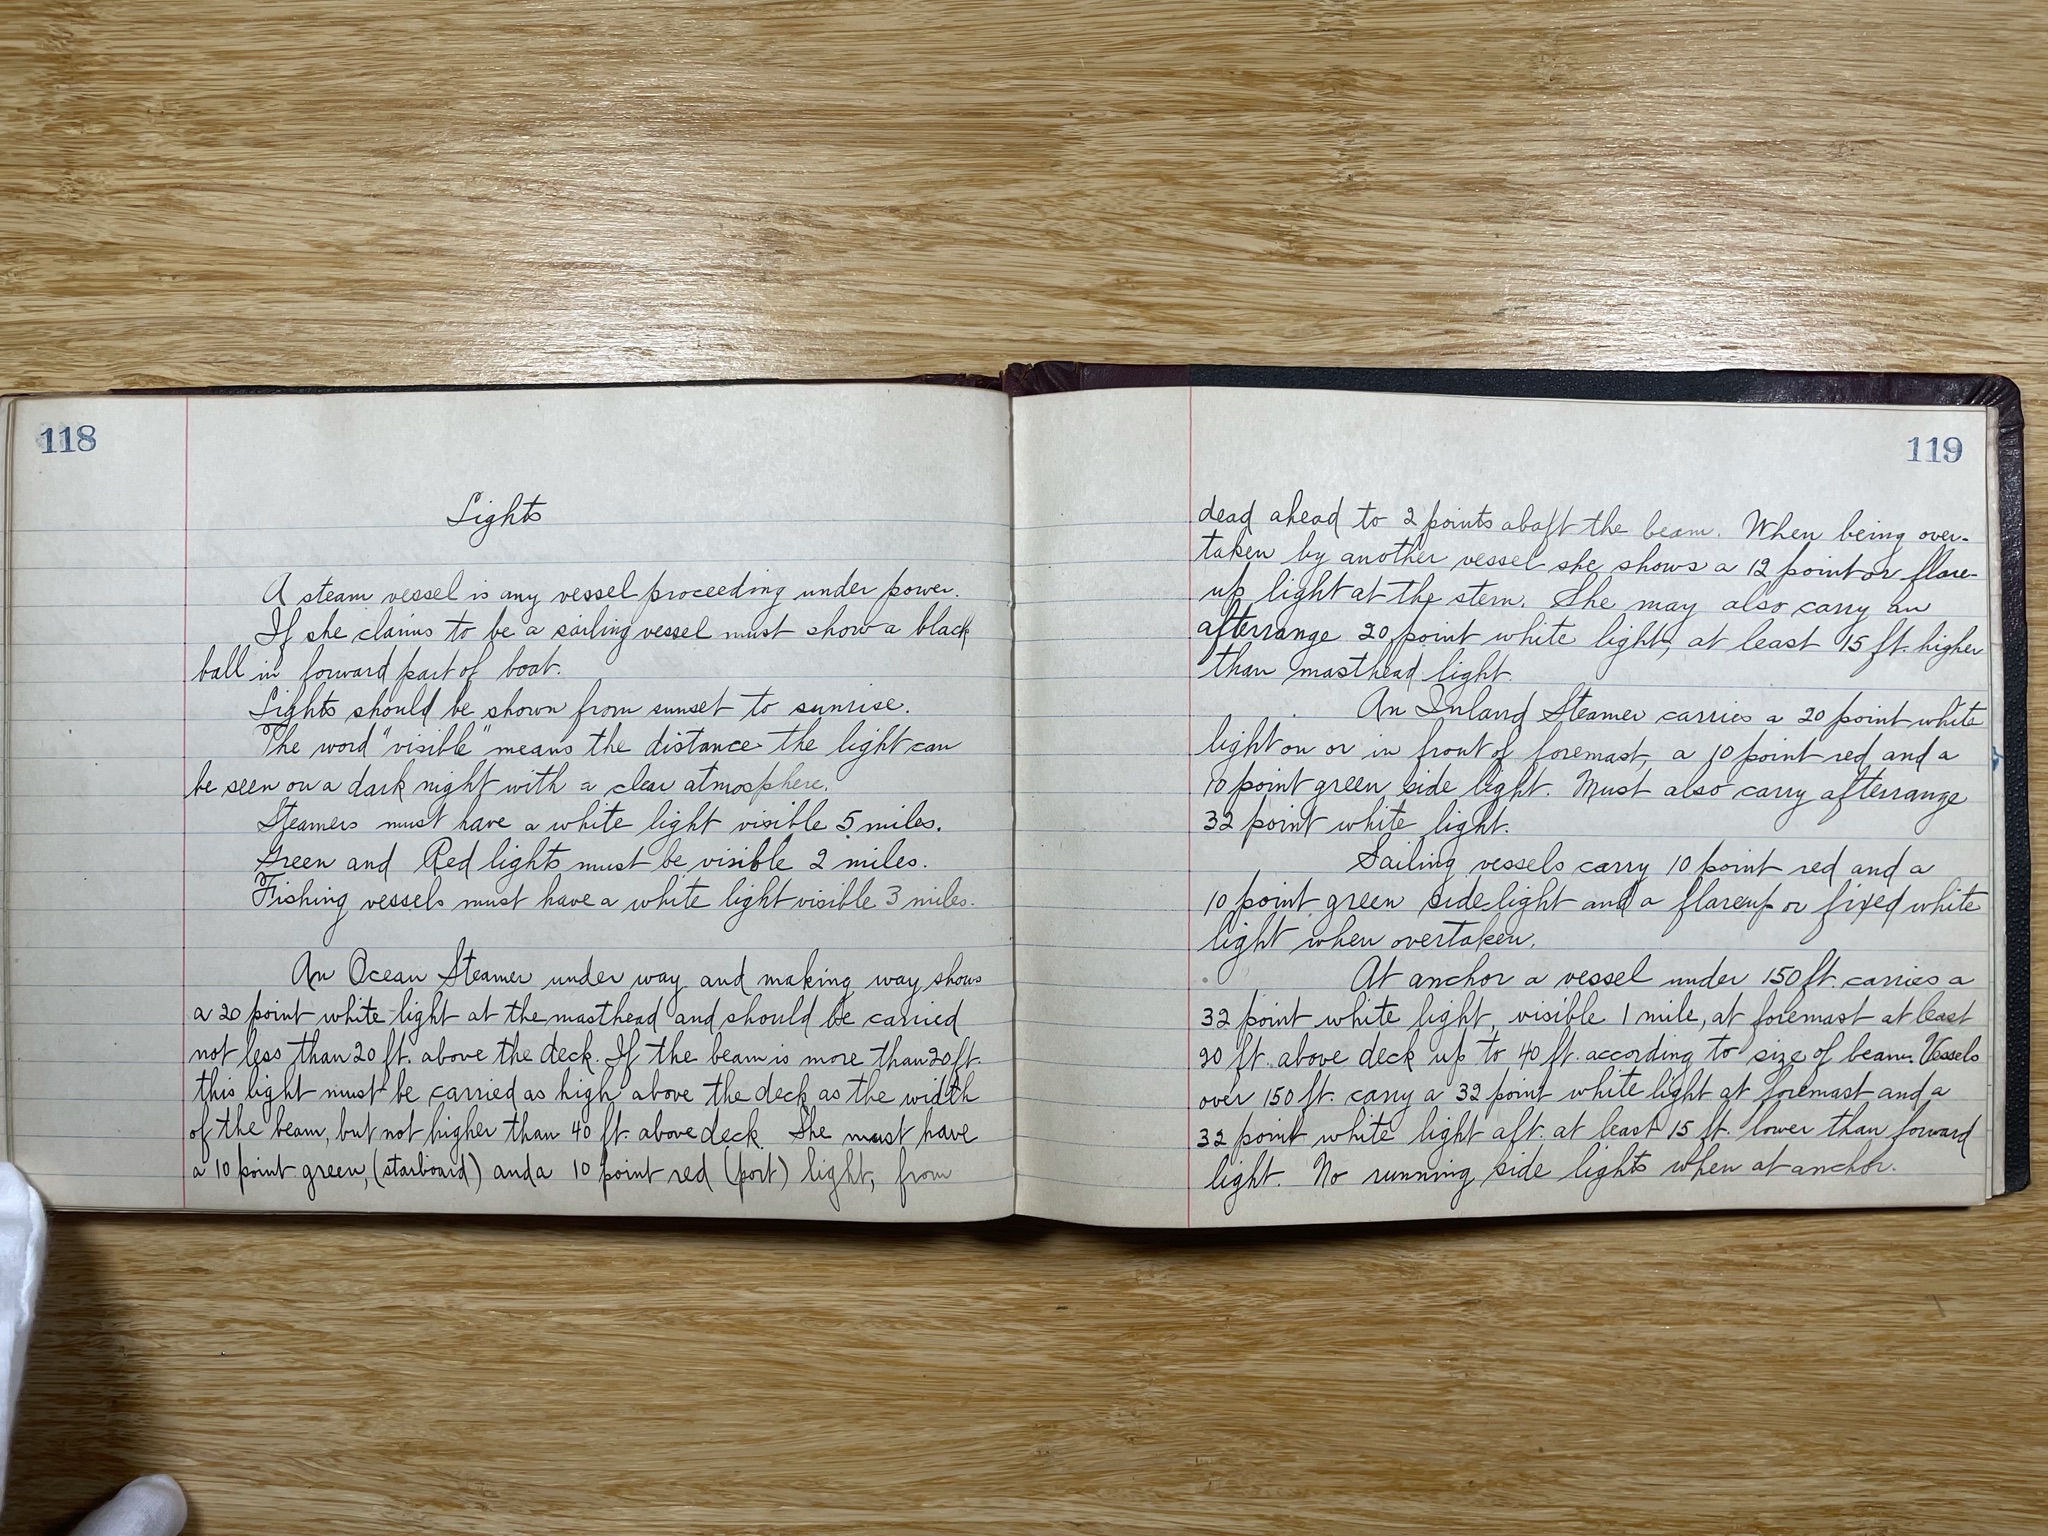 118
Lights
A steam vessel is any vessel proceeding under power.
If she claims to be a sailing vessel must show a black
ball in forward part of boat.
Lights should be shown from sunset to sunrise.
The word "visible" means the distance the light can
be seen on a dark night with a clear atmosphere.
Steamers must have a white light visible 5 miles.
Green and Red lights must be visible 2 miles.
Fishing vessels must have a white light visible 3 miles.
An Ocean Steamer under way and making way shows
a 20 point white light at the masthead and should be carried
not less than 20 ft. above the deck. If the beam is more than 20 ft.
this light must be carried as high above the deck as the width
of the beam, but not higher than 40 ft. above deck. She must have
a 10 point green, (starboard) and a 10 point red (port) light, from
119
dead ahead to 2 points abaft the beam. When being over-
taken by another vessel she shows a 12 point or flare-
up light at the stern. She may also carry an
afterrange 20 point white light, at least 15 ft. higher
than masthead light.
An Inland Steamer carries a 20 point white
light on or in front of foremast, a 10 point red and a
10 point green side light. Must also carry afterrange
32 point white light.
Sailing vessels carry 10 point red and a
10 point green side light and a flareup or fixed white
light when overtaken.
At anchor a vessel under 150 ft. carries a
32 point white light, visible 1 mile, at foremast at least
20 ft. above deck up to 40 ft. according to size of beam. Vessels
over 150 ft. carry a 32 point white light at foremast and a
32 point white light aft. at least 15 ft. lower than forward
light. No running side lights when at anchor.